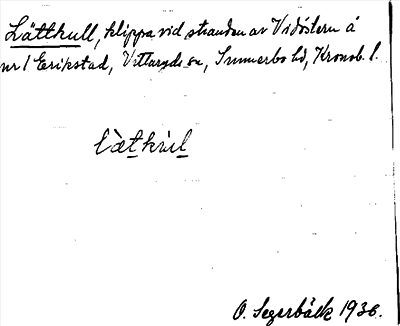 Lättkull, klippa vid stranden av Vidöstern å
nr 1 Erikstad, Vittaryds sn, Sunnerbo hd, Kronob. l.
lètkùl
O. Segerbäck 1936.